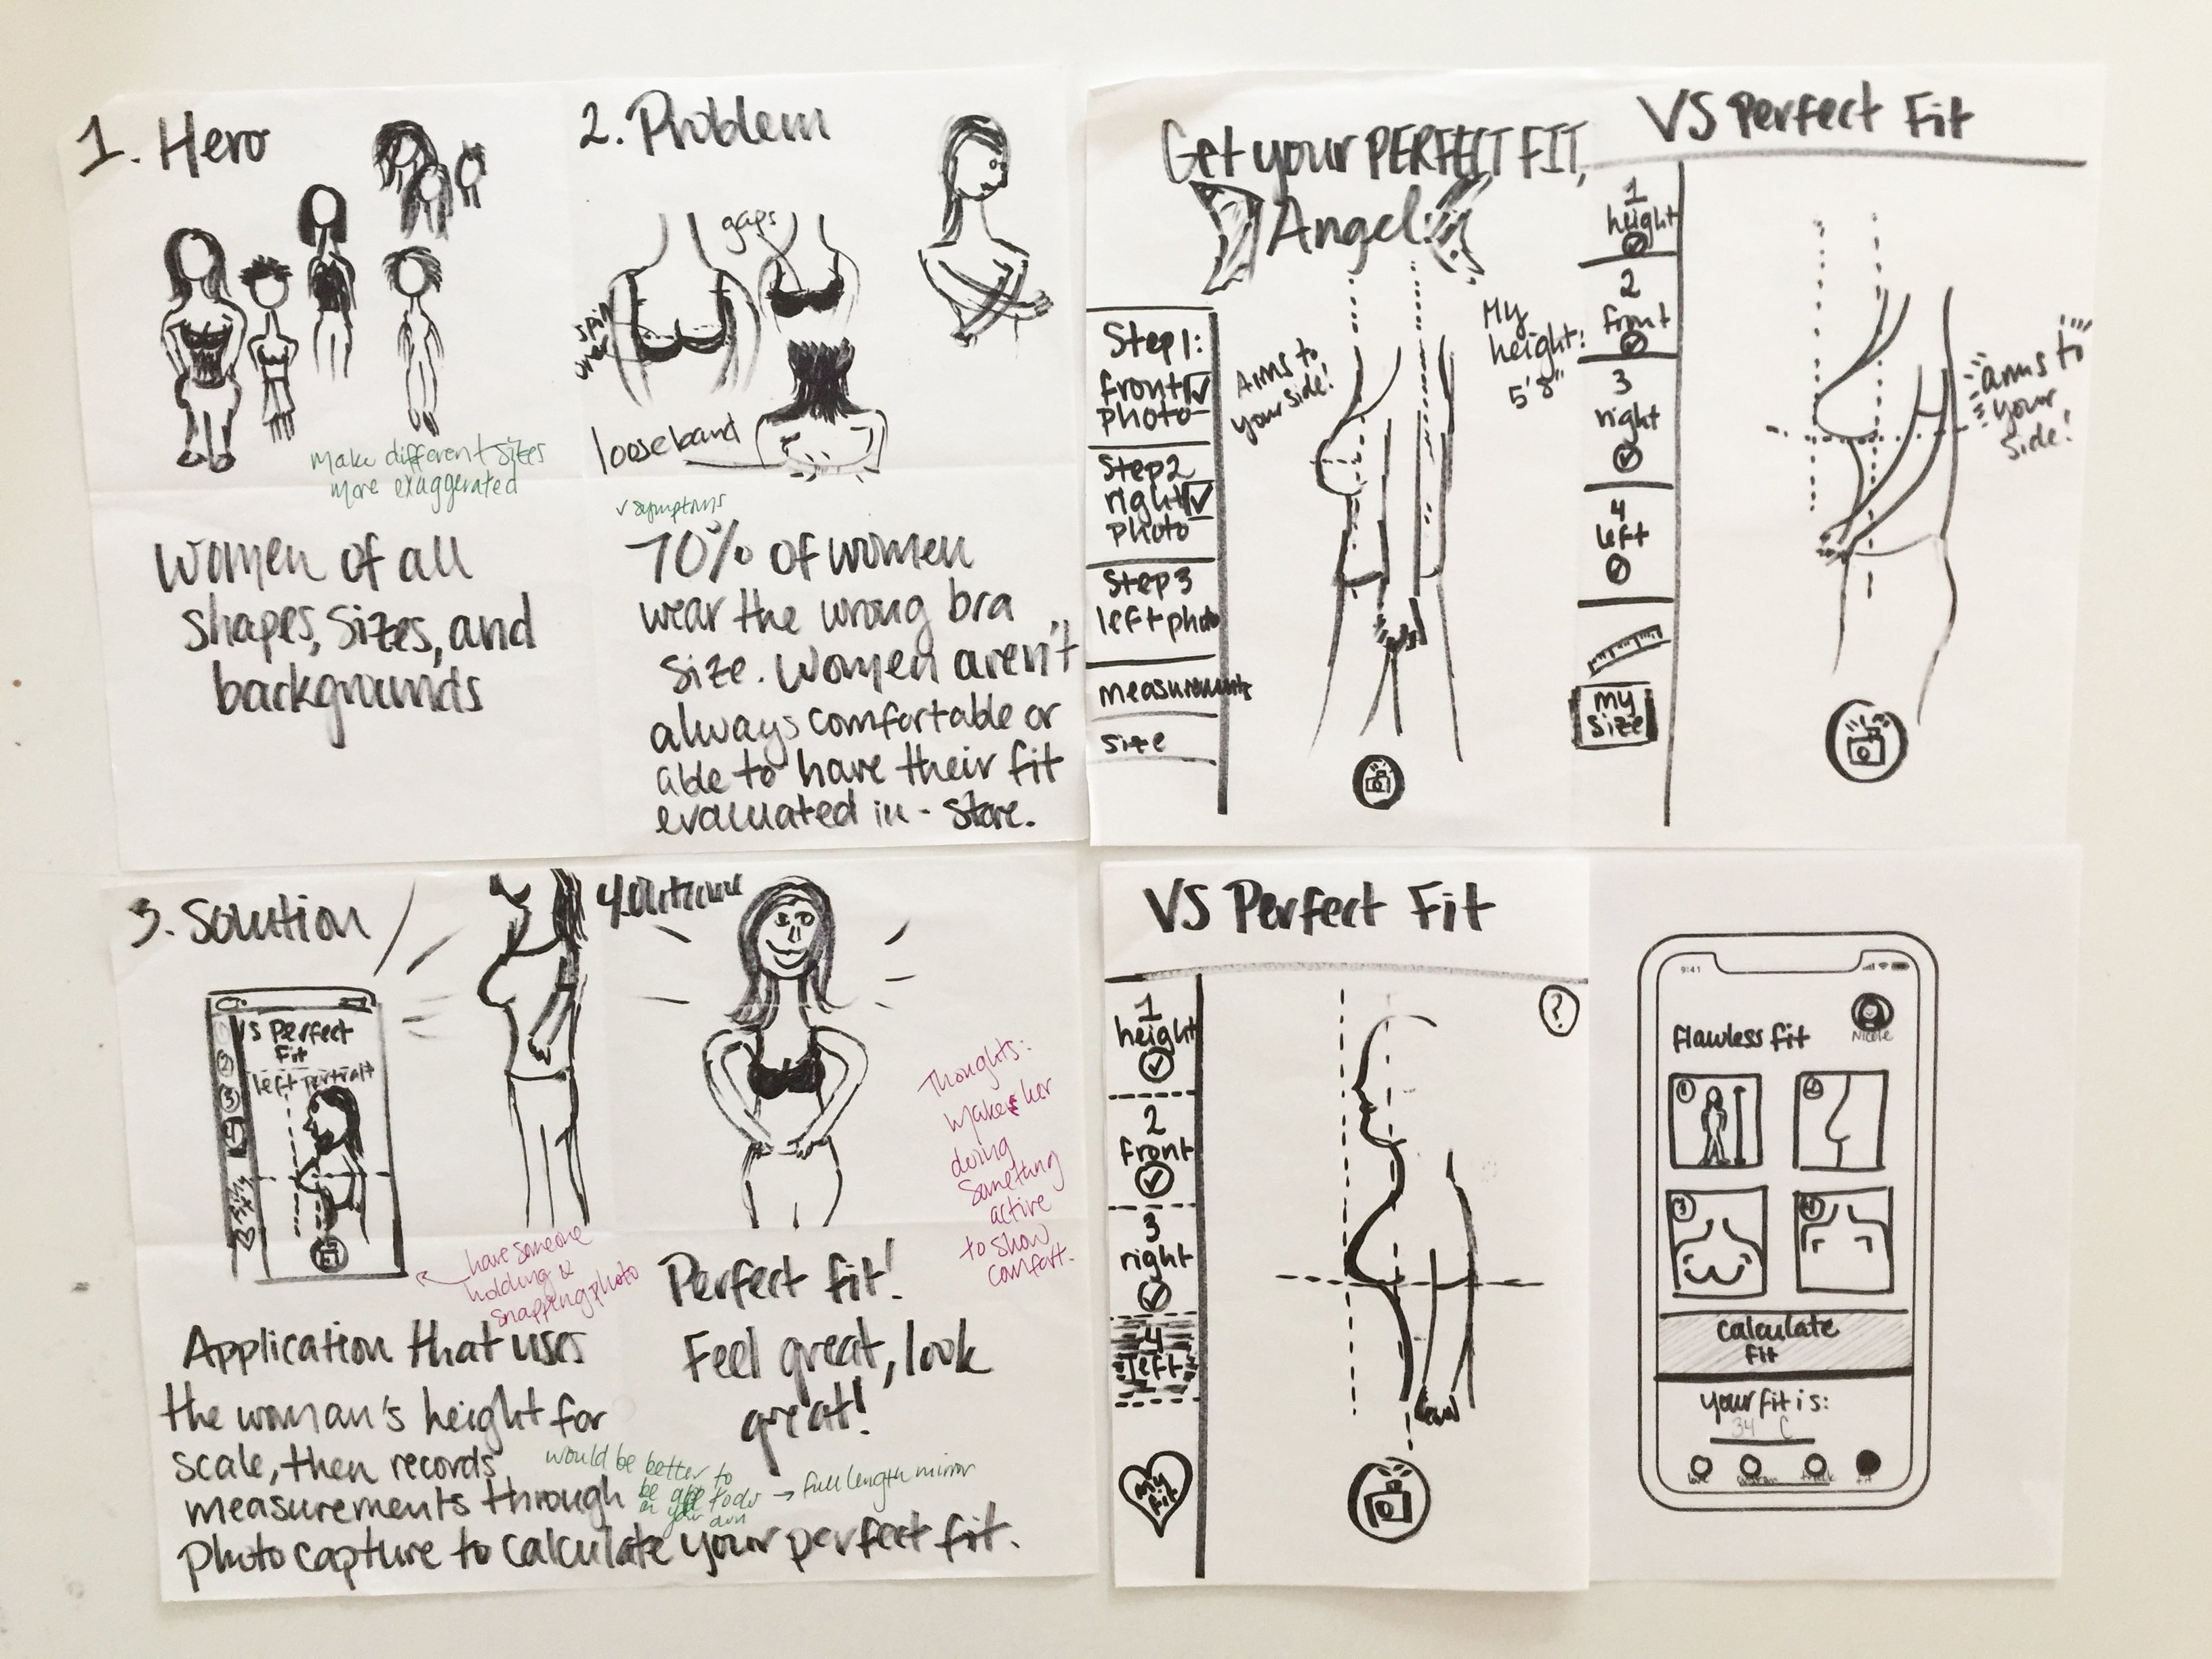 1. Hero
make different sizes
more exaggerated
Women of all
shapes, sizes, and
backgrounds
2. Problem
gaps
spill
over
loose band
symptoms
70% of women
wear the wrong bra
size. Women aren't
always comfortable or
able to have their fit
evaluated in-store.
3. Solution
VS Perfect
Fit
left portrait
have someone
holding &
snapping photo
Application that uses
the woman's height for
scale, then records
measurements through
photo capture to calculate your perfect fit.
would be better to
be able to do → full length mirror
on your own
4. Outcome
Thoughts:
Make her
doing
something
active
to show
comfort.
Perfect fit!
Feel great, look
great!
Get your PERFECT FIT,
Angel
Step 1:
front
photo
Step 2
right
photo
Step 3
left photo
measurements
size
Arms to
your side!
My
height:
5'8"
VS Perfect Fit
1
height
2
front
3
right
4
left
my
size
arms to
your
side!
VS Perfect Fit
1
height
2
front
3
right
4
left
my
fit
?
9:41
flawless fit
Nicole
1
2
3
4
calculate
fit
your fit is:
34 C
fit